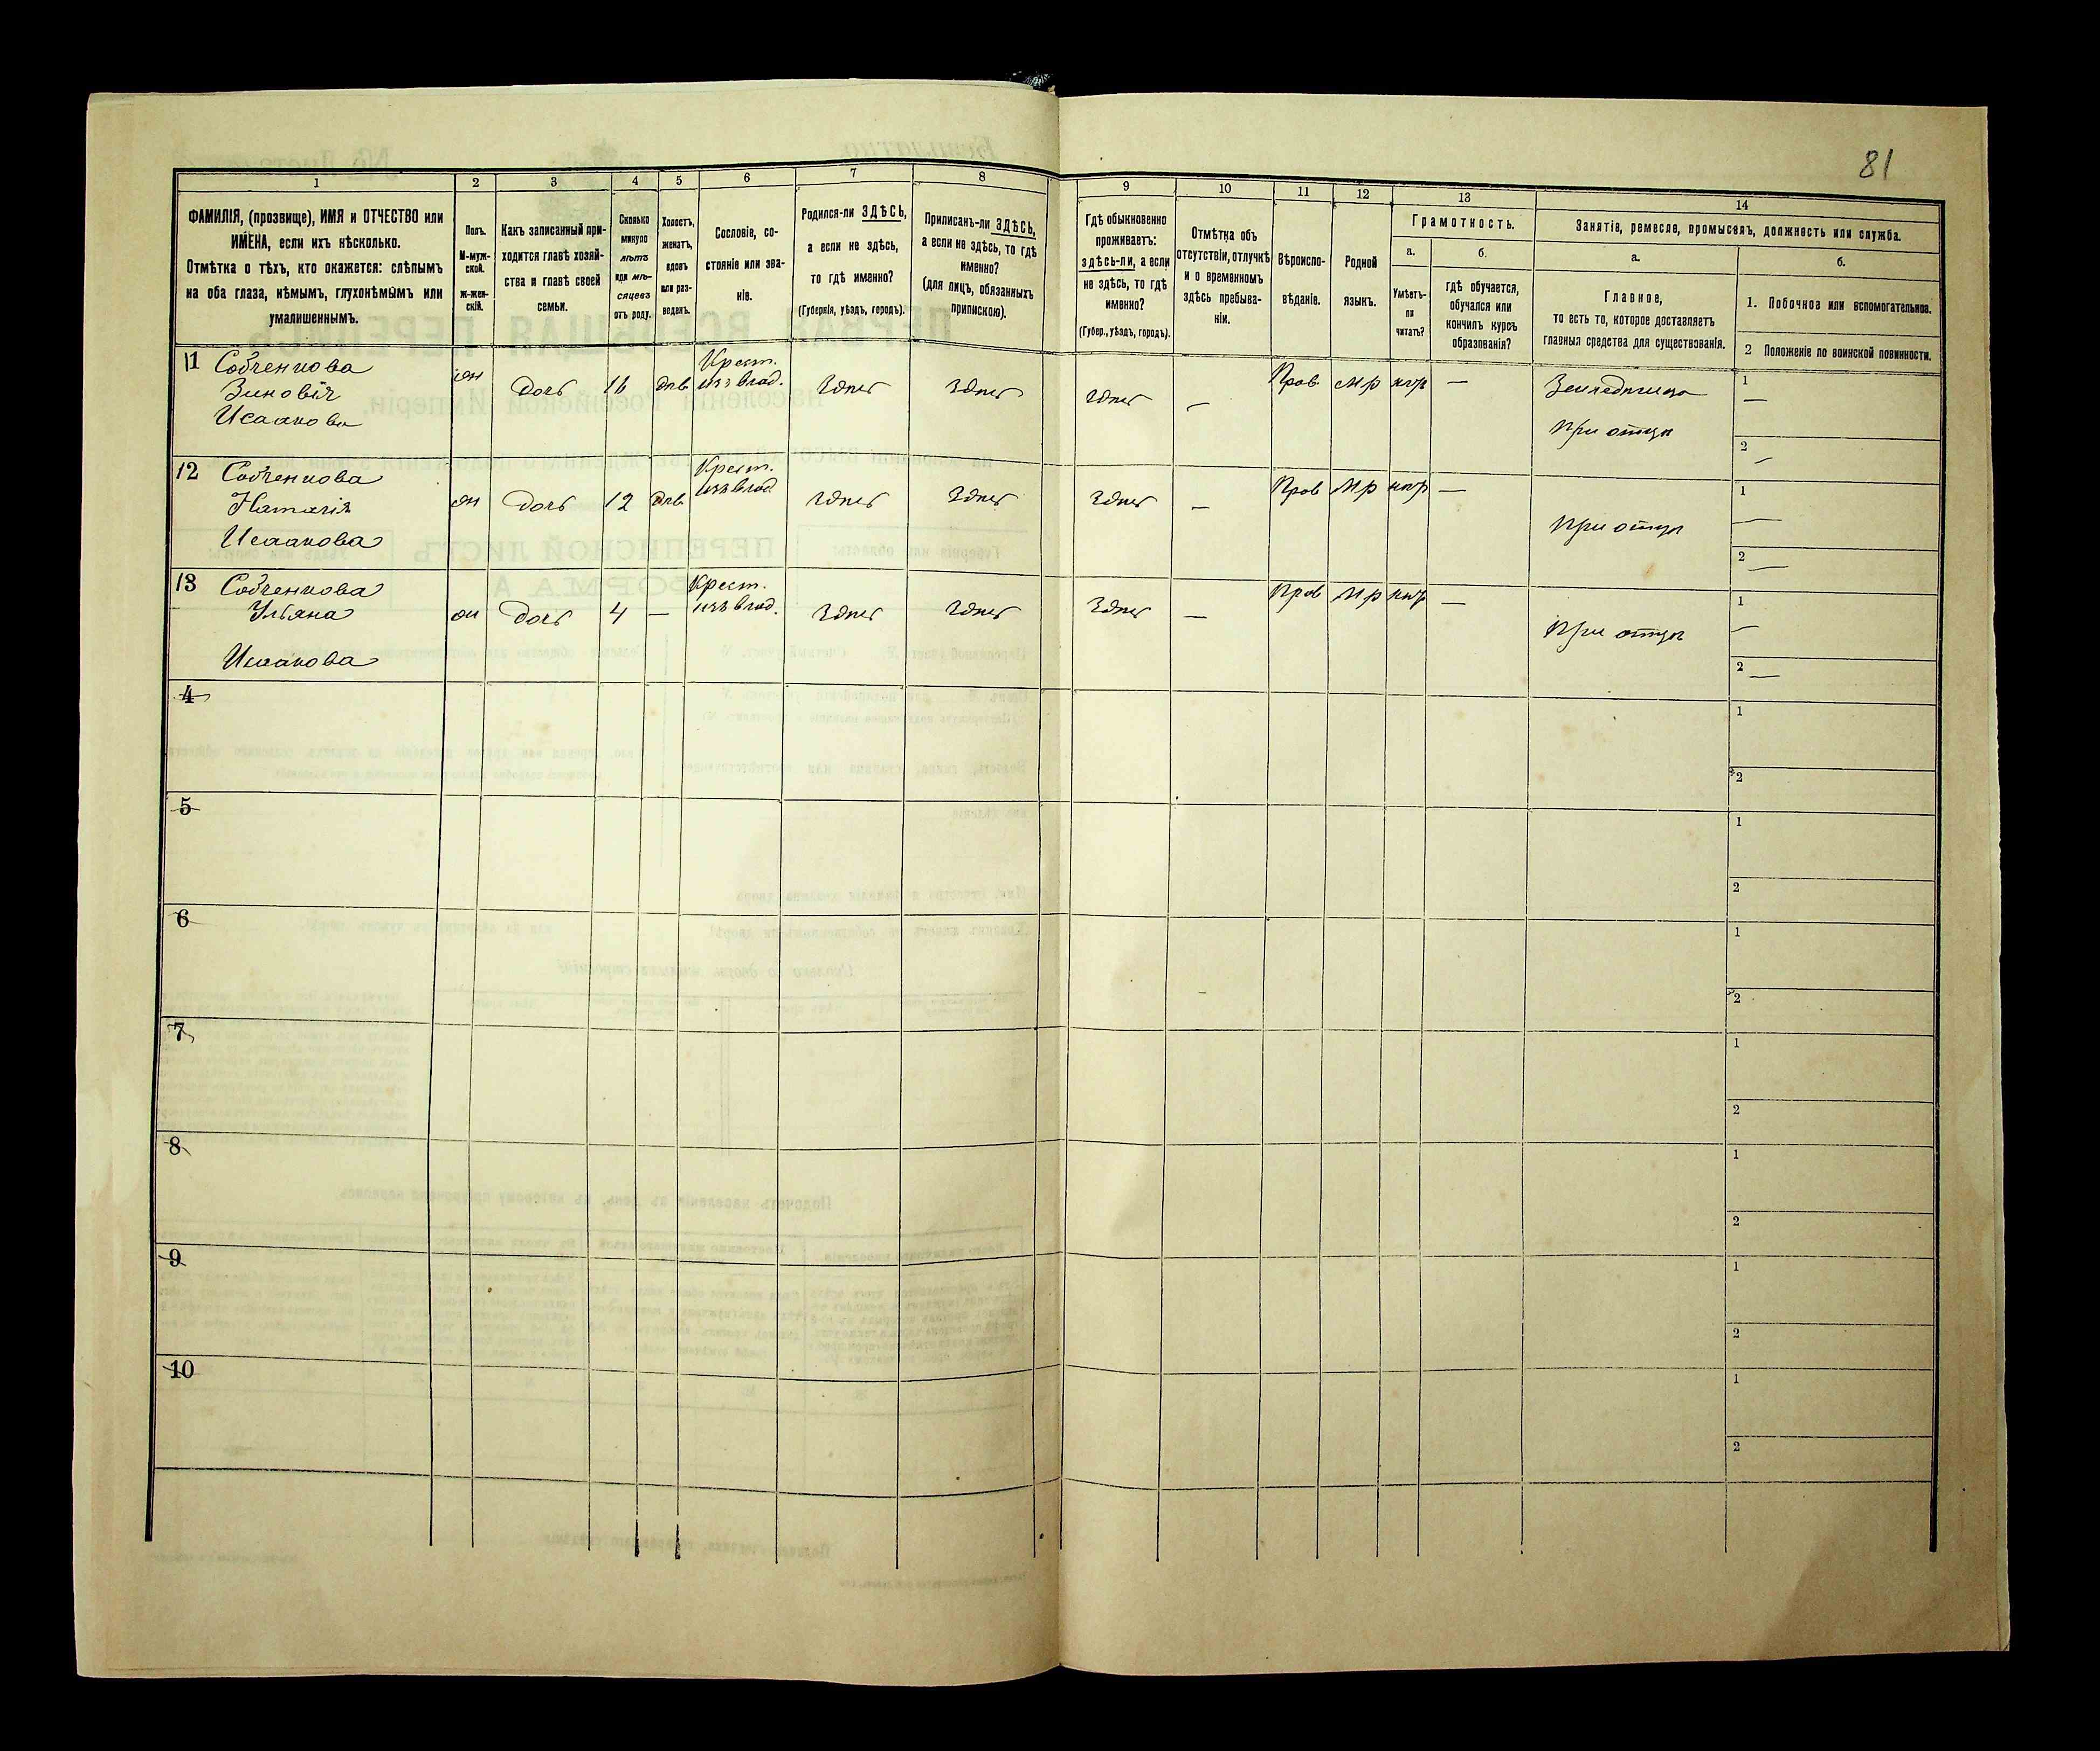 81
1 2 3 4 5 6 7 8 9 10 11 12 13 14
ФАМИЛІЯ, (прозвище), ИМЯ и ОТЧЕСТВО или
ИМЕНА, если ихъ нѣсколько.
Отмѣтка о тѣхъ, кто окажется: слѣпымъ
на оба глаза, нѣмымъ, глухонѣмымъ или
умалишеннымъ.
Полъ.
М-муж-
ской.
ж-жен-
скій.
Какъ записанный при-
ходится главѣ хозяй-
ства и главѣ своей
семьи.
Сколько
минуло
лѣтъ
или мѣ-
сяцевъ
отъ роду.
Холостъ,
женатъ,
вдовъ
или раз-
веденъ.
Сословіе, со-
стояніе или зва-
ніе.
Родился-ли ЗДѢСЬ,
а если не здѣсь,
то гдѣ именно?
(Губернія, уѣздъ, городъ).
Приписанъ-ли ЗДѢСЬ,
а если не здѣсь, то гдѣ
именно?
(для лицъ, обязанныхъ
припискою).
Гдѣ обыкновенно
проживаетъ:
здѣсь-ли, а если
не здѣсь, то гдѣ
именно?
(Губер., уѣздъ, городъ).
Отмѣтка объ
отсутствіи, отлучкѣ
и о временномъ
здѣсь пребыва-
ніи.
Вѣроиспо-
вѣданіе.
Родной
языкъ.
Грамотность.
а.
Умѣетъ-
ли
читать?
б.
гдѣ обучается,
обучался или
кончилъ курсъ
образованія?
Занятіе, ремесло, промыселъ, должность или служба.
а.
Главное,
то есть то, которое доставляетъ
главныя средства для существованія.
б.
1. Побочное или вспомогательное.
2 Положеніе по воинской повинности.
11 Собченкова
Зиновія
Исаакова
ж дочь 16 дѣв. Крест.
изъ влад. здѣсь здѣсь здѣсь — Прав мр нѣт — Земледѣлица
при отцѣ
1 —
2 —
12 Собченкова
Наталія
Исаакова
ж дочь 12 дѣв. Крест.
изъ влад здѣсь здѣсь здѣсь — Прав мр нѣт —
при отцѣ
1 —
2 —
13 Собченкова
Ульяна
Исаакова
ж дочь 4 — Крест.
изъ влад. здѣсь здѣсь здѣсь — Прав мр нѣт —
при отцѣ
1 —
2 —
4
1
2
5
1
2
6
1
2
7
1
2
8
1
2
9
1
2
10
1
2